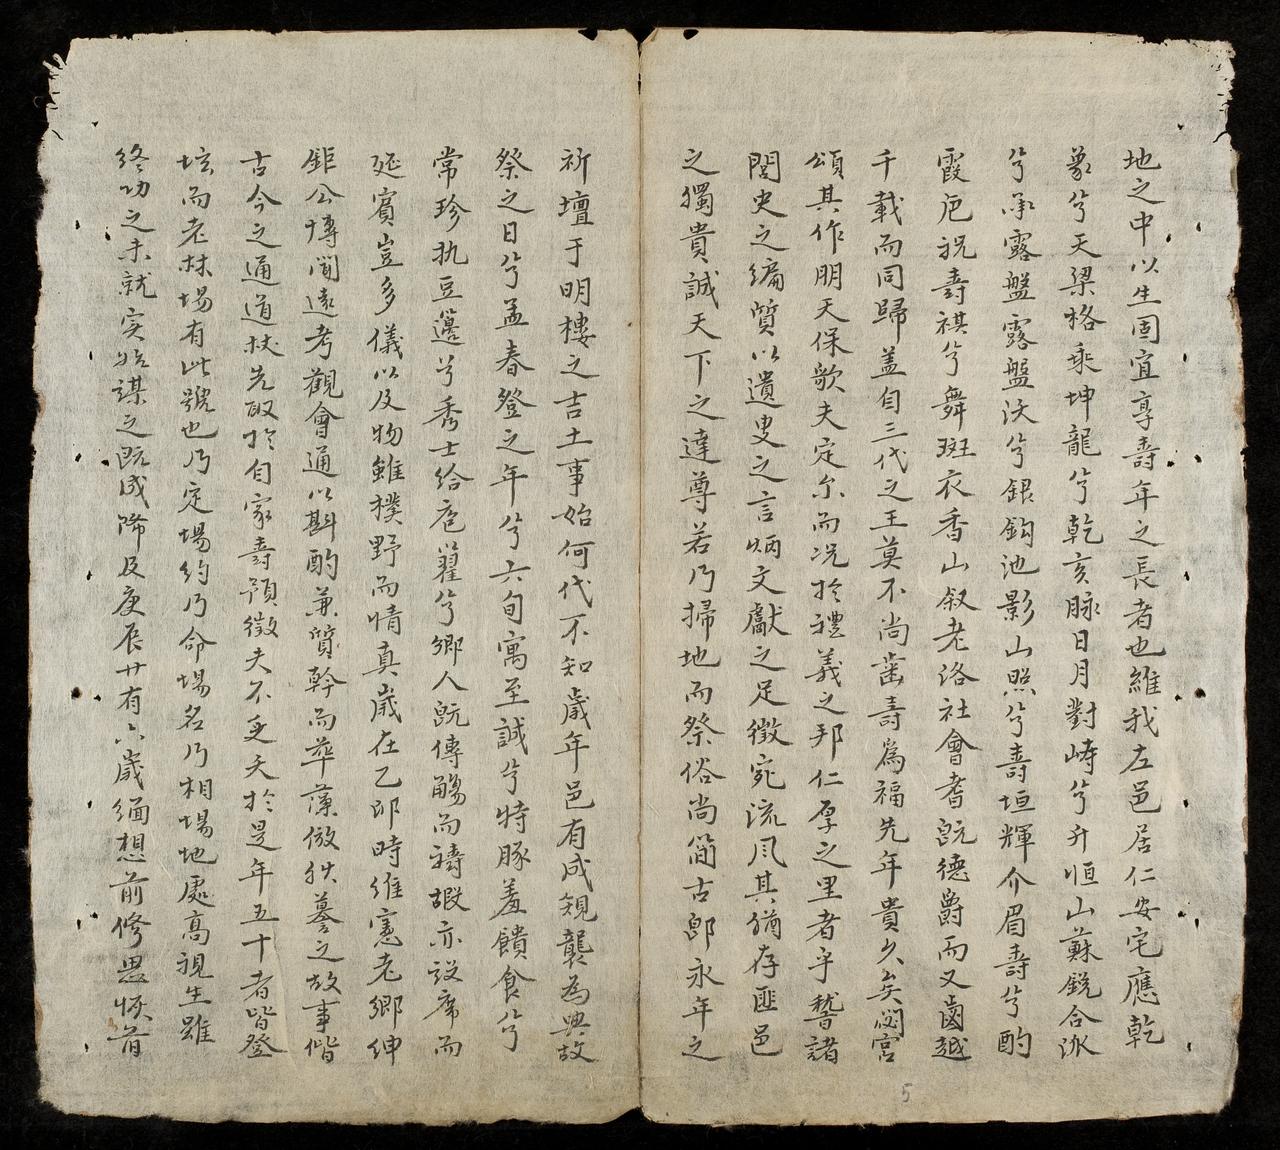 地之中以生固宜享壽年之長者也維我左邑居仁安宅應乾
象兮天梁格乘坤龍兮乾亥脉日月對峙兮升恒山蘇銳合派
兮承露盤露盤沃兮銀鈎池影山照兮壽垣輝介眉壽兮酌
霞巵祝壽祺兮舞斑衣香山叙老洛社會耆旣德爵而又齒越
千載而同歸盖自三代之王莫不尚齒壽爲福先年貴久矣閟宮
頌其作朋天保歌夫定尔而况於禮義之邦仁厚之里者乎稽諸
閭史之編質以遺叟之言炳文獻之足徵宛流風其猶存匪邑
之獨貴誠天下之達尊若乃掃地而祭俗尚簡古郎永年之
祈壇于明樓之吉土事始何代不知歲年邑有成規襲為典故
祭之日兮孟春登之年兮六旬寓至誠兮特豚羞饋食兮
常珍執豆籩兮秀士給庖翟兮鄉人旣傳觴而禱嘏亦設席而
延賓豈多儀以及物雖樸野而情真歲在乙卯時維憲老鄉紳
鉅公博聞遠考觀會通以斟酌兼質幹而華藻倣帙墓之故事偕
古今之通道杖先取於自家壽預徵夫不更夭於是年五十者皆登
坛而老林場有此號也乃定場約乃命場名乃相場地處高視生雖
終功之未就实始謀之旣成降及庚辰廿有六歲緬想前修思恢前